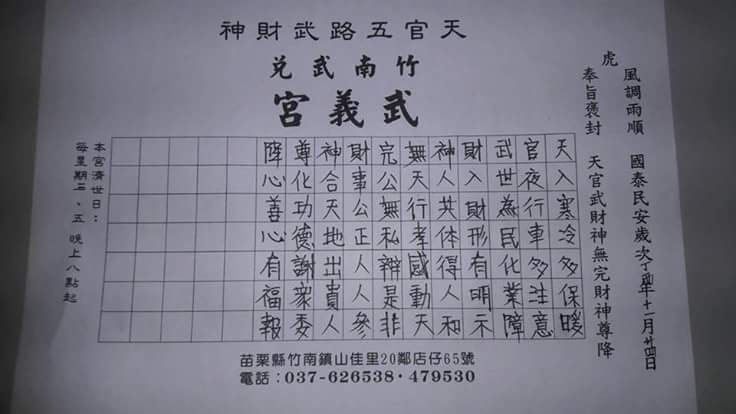 天官五路武財神
竹南武兌
武義宮
虎
風調雨順 國泰民安歲次丁酉年十一月廿四日
奉旨褒封 天官武財神無完財神尊降
天入寒冷多保暖
官夜行車多注意
武世為民化業障
財入財形有明示
神人共体得人和
無天行孝感動天
完公無私辨是非
財事公正人人參
神合天地出貴人
尊化功德謝眾委
降心善心有福報
本宮濟世日：
每星期、五 晚上八點起
苗栗縣竹南鎮山佳里20鄰店仔65號
電話：037-626538・479530